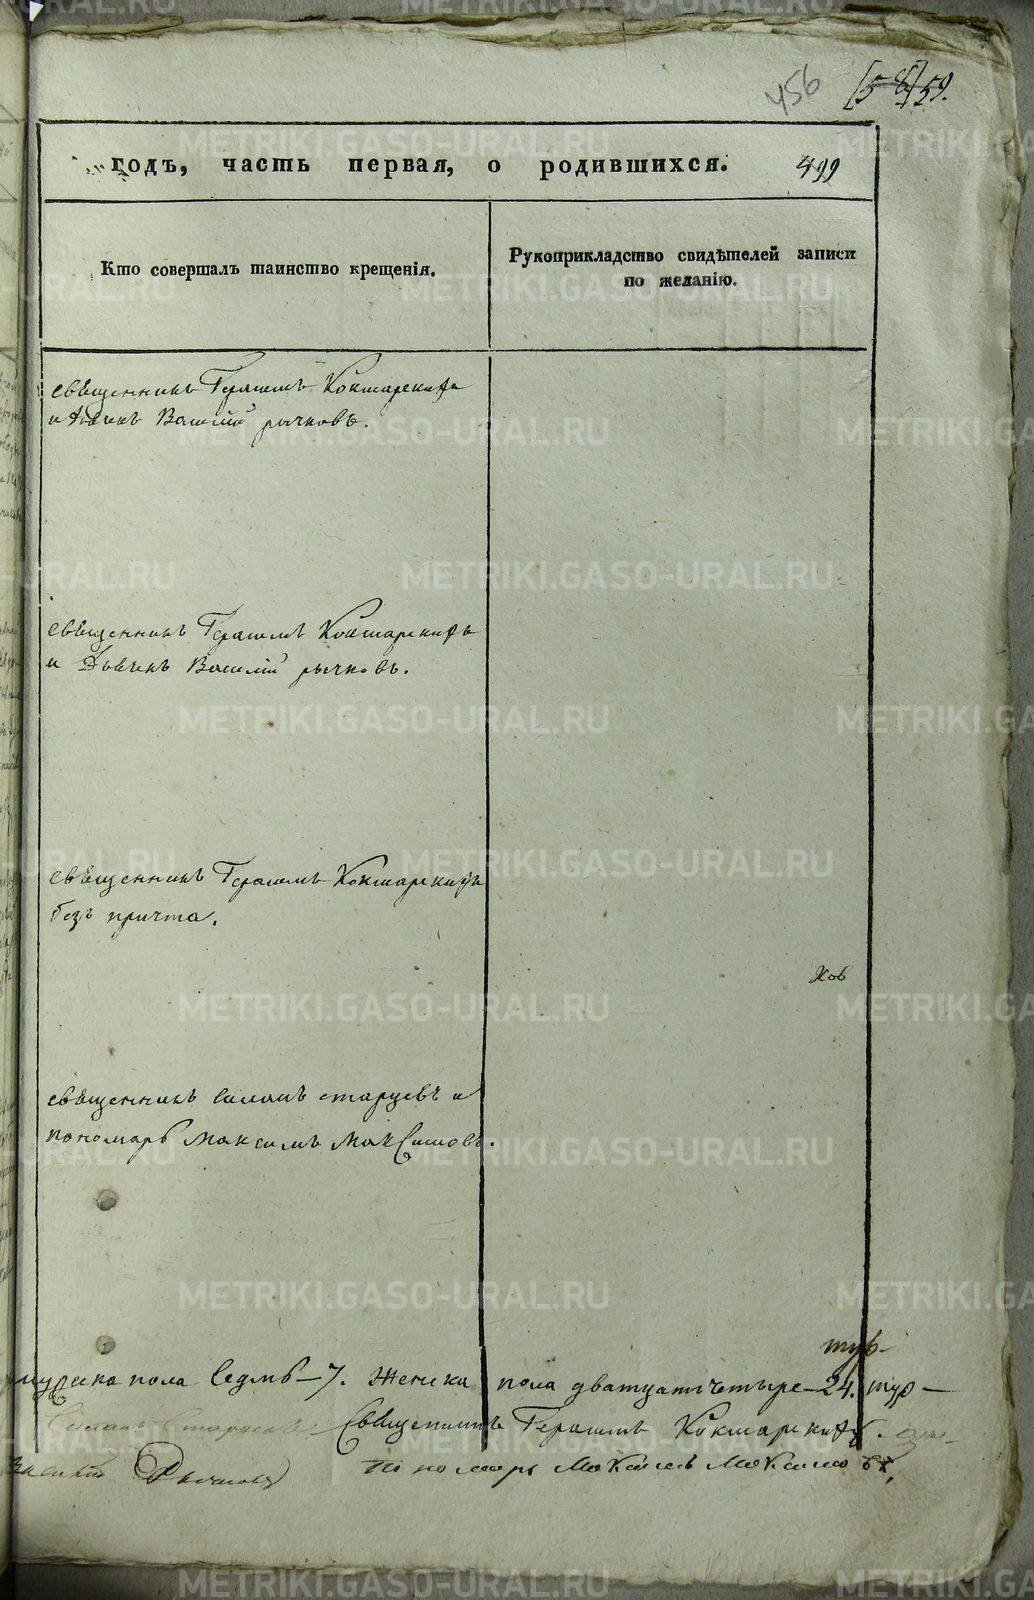 456 [58] 59.
годъ, часть первая, о родившихся. 499
Кто совершалъ таинство крещенія.
Рукоприкладство свидѣтелей записи
по желанію.
священникъ Герасимъ Кокшарскихъ
и дьячекъ Василій рычковъ.
священникъ Герасимъ Кокшарскихъ
и Дьячекъ Василій рычковъ.
священникъ Герасимъ Кокшарскихъ
безъ причта.
хов
священникъ Симонъ старцевъ и
пономарь максимъ макСимовъ.
мужеска пола Седмь – 7. женска пола дватцать четыре – 24.
Симонъ Старцевъ. Священникъ Герасимъ Кокшарскихъ.
Василій Рычковъ Пономарь Максимъ Максимовъ,
METRIKI.GASO-URAL.RU